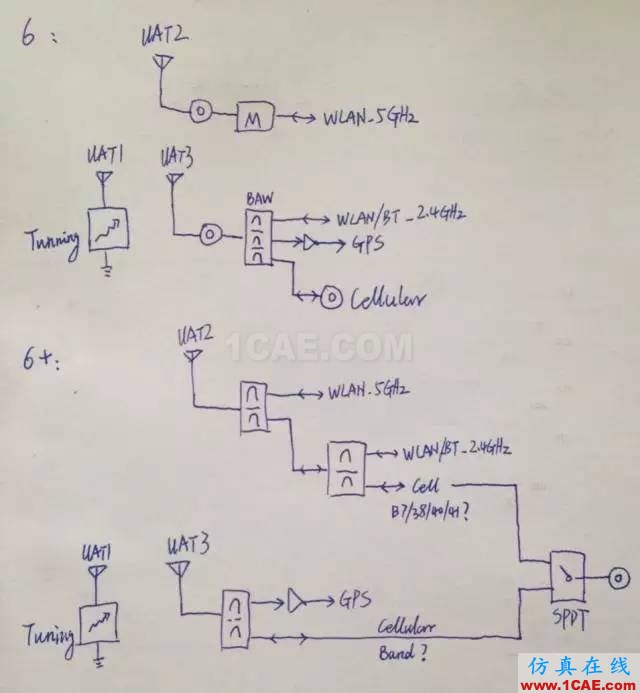 6:
UAT2
M
WLAN_5GHz
UAT1
UAT3
BAW
WLAN/BT_2.4GHz
GPS
Tunning
Cellular
1CAE.COM
6+:
UAT2
WLAN_5GHz
WLAN/BT_2.4GHz
Cell
B7/38/40/41?
UAT1
UAT3
GPS
Tuning
Cellular
Band?
SPDT
仿真在线
www.1CAE.com